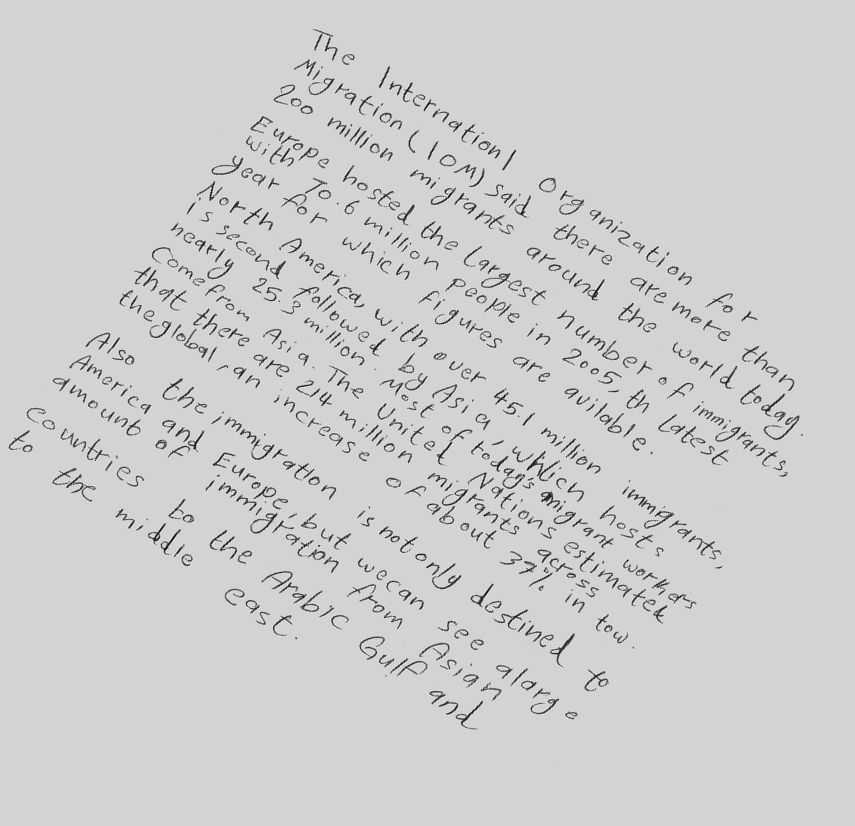 The Internationl Organization for
Migration (IOM) said there are more than
200 million migrants around the world today.
Europe hosted the largest number of immigrants,
with 70.6 million people in 2005, th latest
year for which figures are avilable.
North America, with over 45.1 million immigrants,
is second followed by Asia, which hosts
nearly 25.3 million. Most of today's migrant workers
Come from Asia. The United Nations estimated
that there are 214 million migrants across
the global, an increase of about 37% in tow.
Also the immigration is not only destined to
America and Europe, but we can see alarge
amount of immigration from Asian
countries to the Arabic Gulf and
to the middle east.